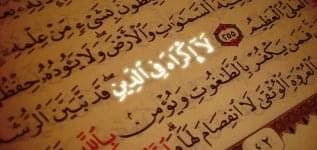 بِشَيْءٍ مِّنْ عِلْمِهِ
السَّمَٰوَٰتِ وَالْأَرْضَ وَلَا يَئُودُهُ حِفْظُهُ
الْعَلِيُّ الْعَظِيمُ ٢٥٥ لَا إِكْرَاهَ فِي الدِّينِ قَد تَّبَيَّنَ الرُّشْدُ
فَمَن يَكْفُرْ بِالطَّٰغُوتِ وَيُؤْمِن بِاللَّهِ
الْعُرْوَةِ الْوُثْقَىٰ لَا انفِصَامَ لَهَا
٤٢